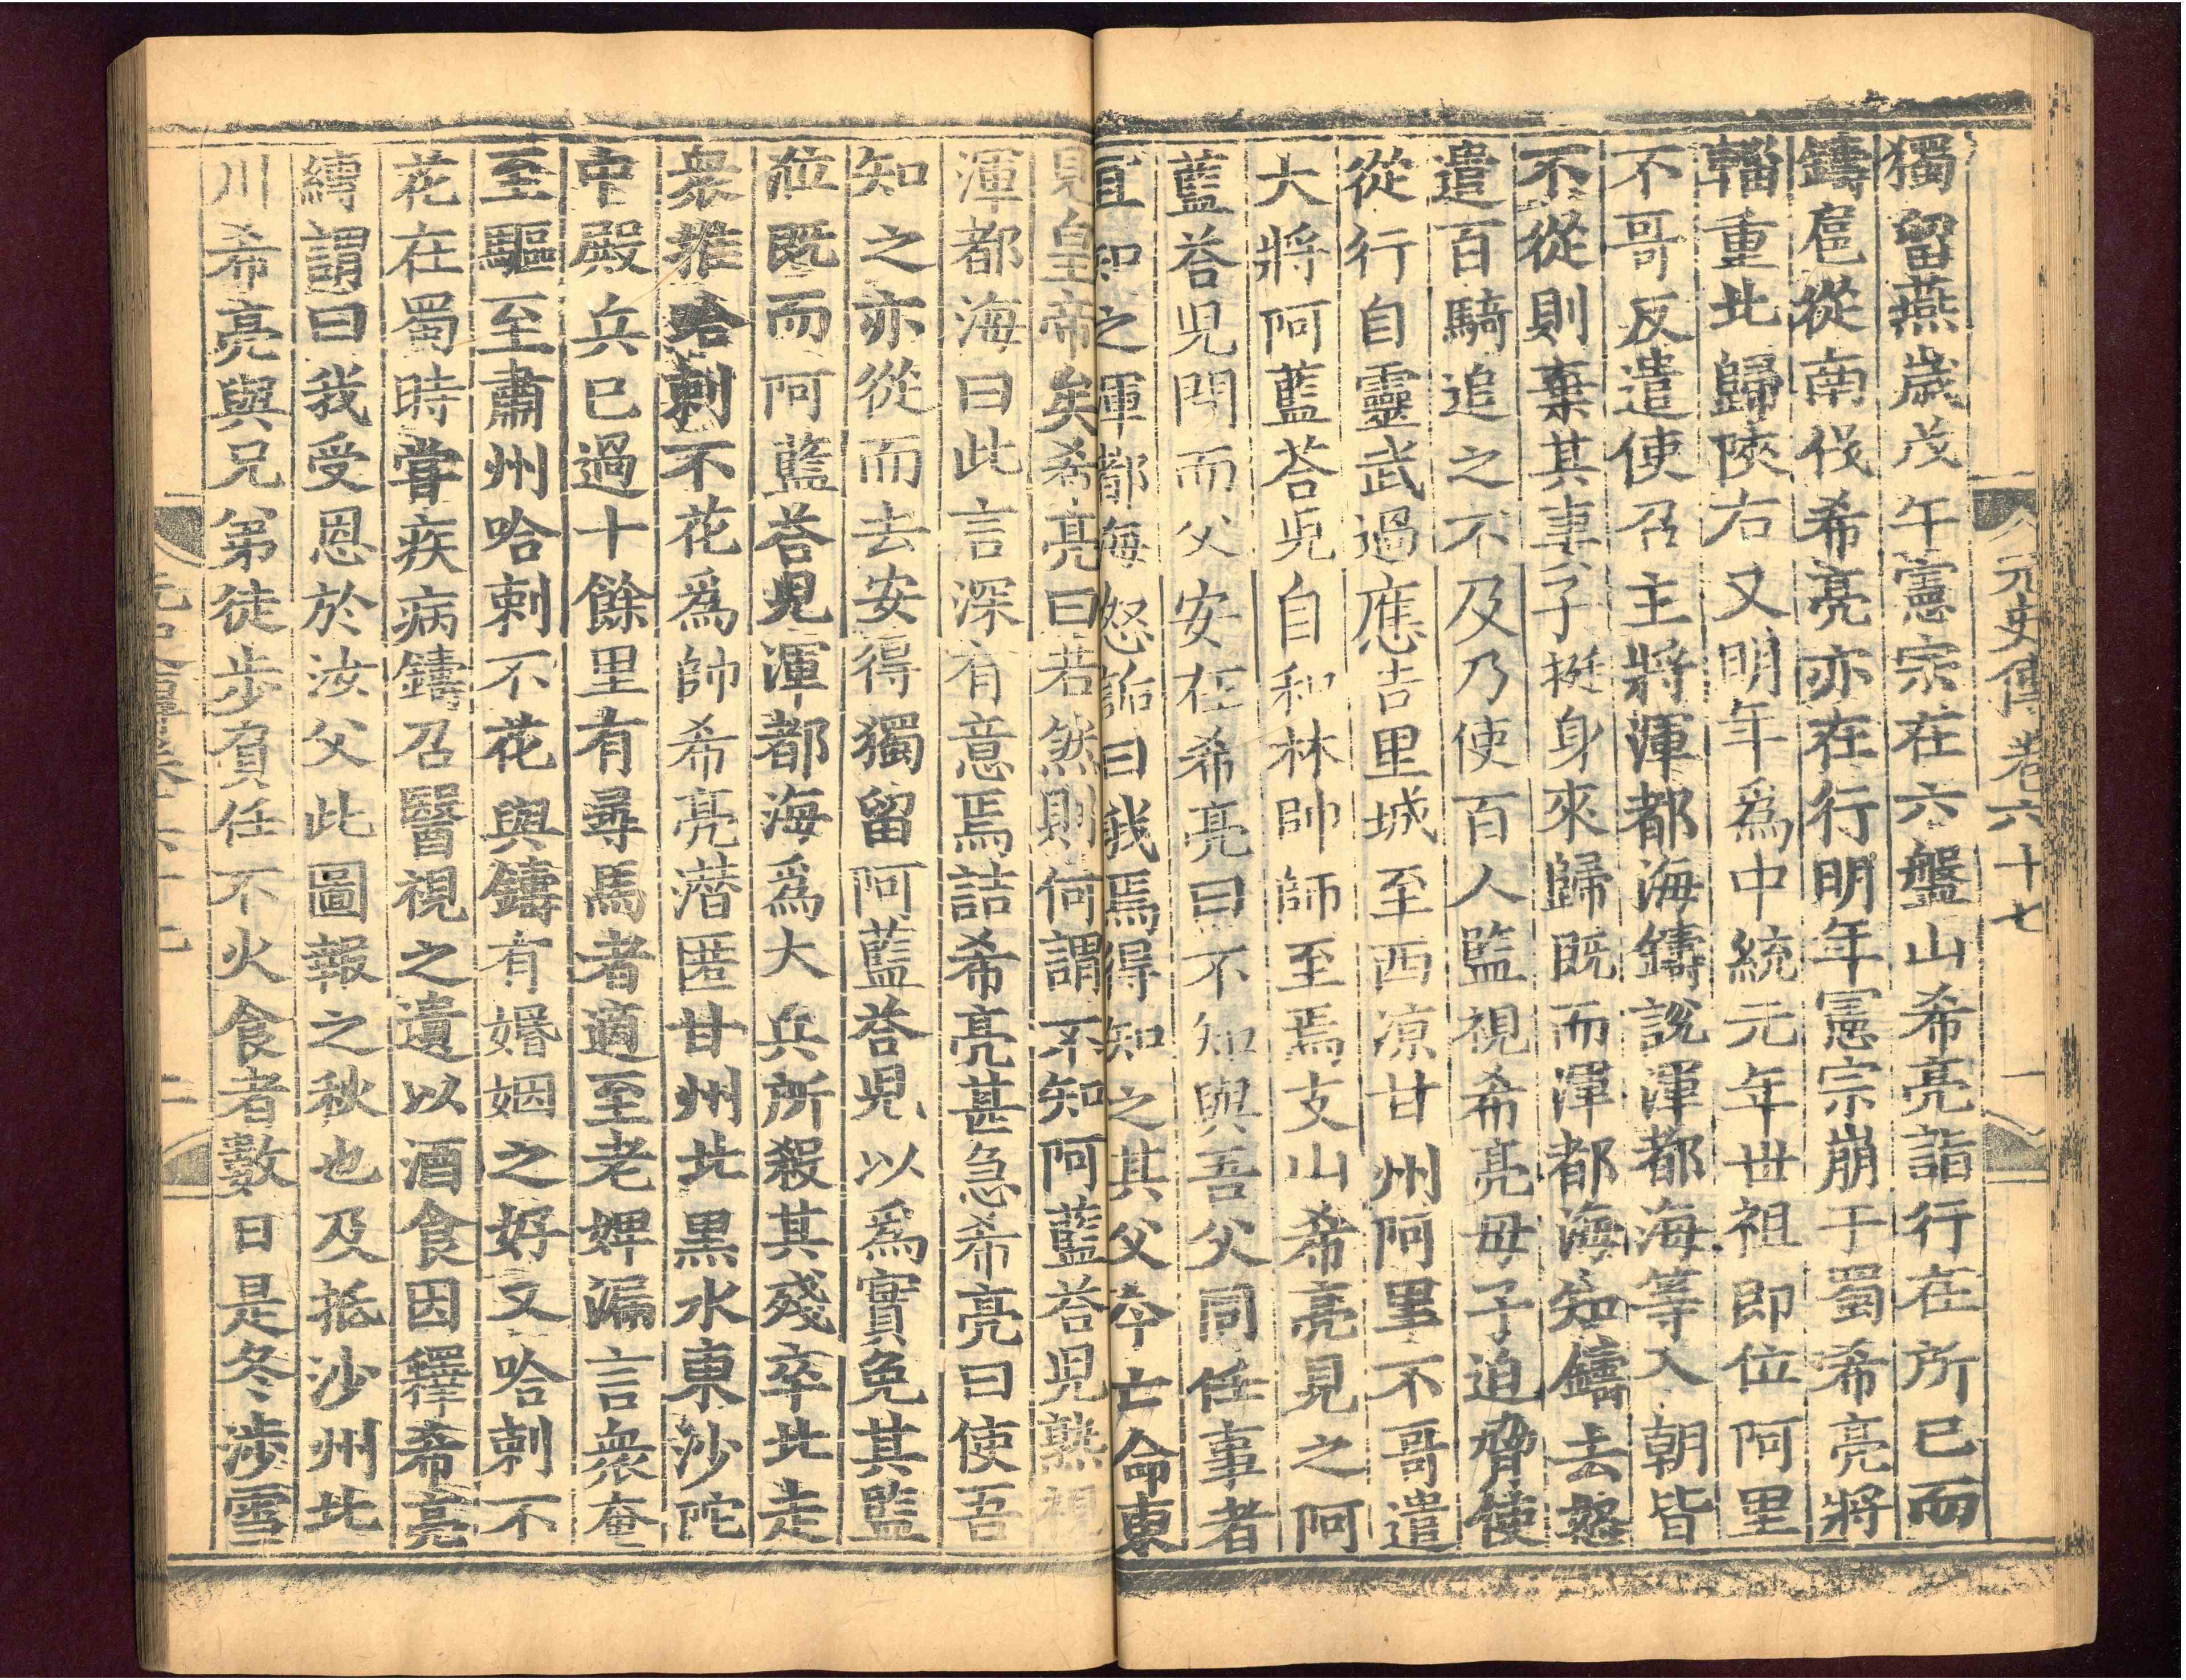 元史傳卷六十七 一
獨留燕歲戊午憲宗在六盤山希亮詣行在所已而
鑄扈從南伐希亮亦在行明年憲宗崩于蜀希亮將
輜重北歸陝右又明年爲中統元年世祖即位阿里
不哥反遣使召主將渾都海鑄說渾都海等入朝皆
不從則棄其妻子挺身來歸既而渾都海知鑄去怒
遣百騎追之不及乃使百人監視希亮母子迫脅使
從行自靈武過應吉里城至西涼甘州阿里不哥遣
大將阿藍荅兒自和林帥師至焉支山希亮見之阿
藍荅兒問而父安在希亮曰不知與吾父同任事者
宜知之渾都海怒詬曰我焉得知之其父今亡命東
見皇帝矣希亮曰若然則何謂不知阿藍荅兒熟視
渾都海曰此言深有意焉詰希亮甚急希亮曰使吾
知之亦從而去安得獨留阿藍荅兒以爲實免其監
涖既而阿藍荅兒渾都海爲大兵所殺其殘卒北走
衆推哈剌不花爲帥希亮潛匿甘州北黒水東沙陀
中殿兵已過十餘里有尋馬者適至老婢漏言衆奄
至驅至肅州哈剌不花與鑄有婚姻之好又哈剌不
花在蜀時嘗疾病鑄召醫視之遺以酒食因釋希亮
縳謂曰我受恩於汝父此圖報之秋也及抵沙州北
川希亮與兄弟徒步負任不火食者數日是冬涉雪